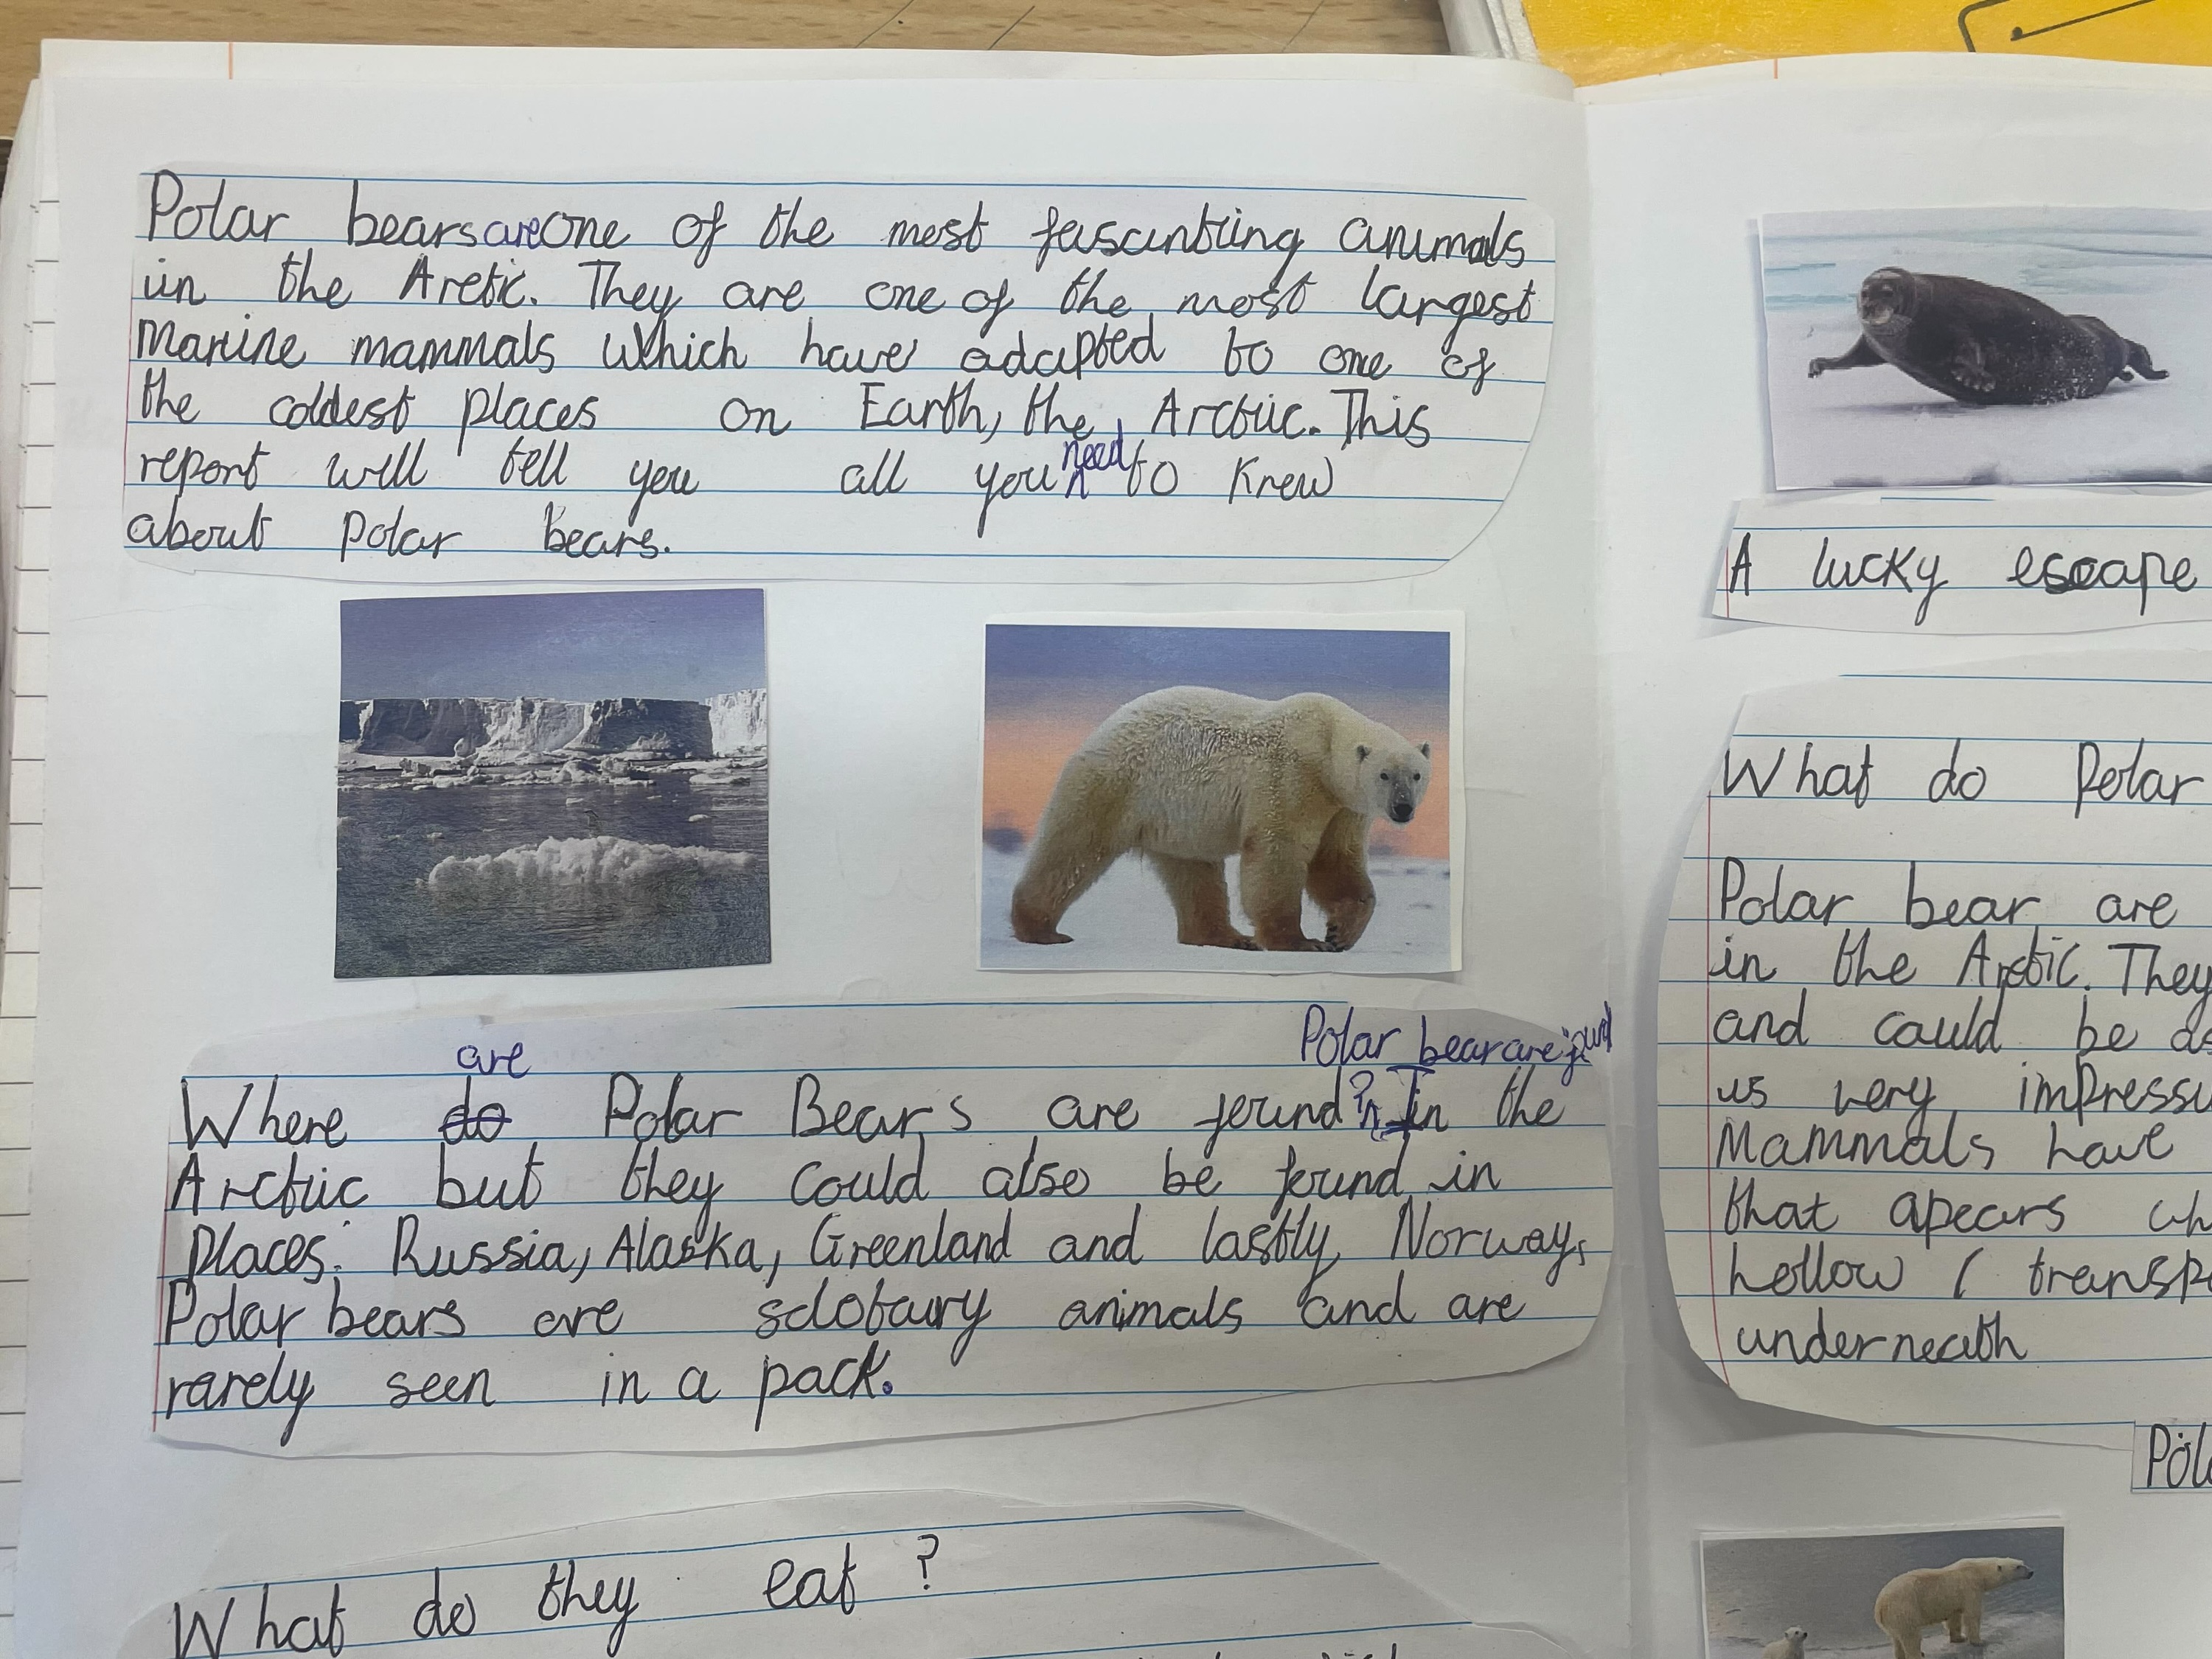 Polar bears are one of the most fascinting animals
in the Arctic. They are one of the most largest
Marine mammals which have adapted to one of
the coldest places on Earth, the Arctic. This
report will tell you all you need to know
about polar bears.
are
Polar bear are
Where do Polar Bears are found? In the
Arctic but they could also be found in
places: Russia, Alaska, Greenland and lastly Norway.
Polar bears are solotary animals and are
rarely seen in a pack.
What do they eat?
A lucky escape
What do Polar
Polar bear are
in the Arctic. They
and could be
us very
Mammals have
that apears
hollow /
underneath